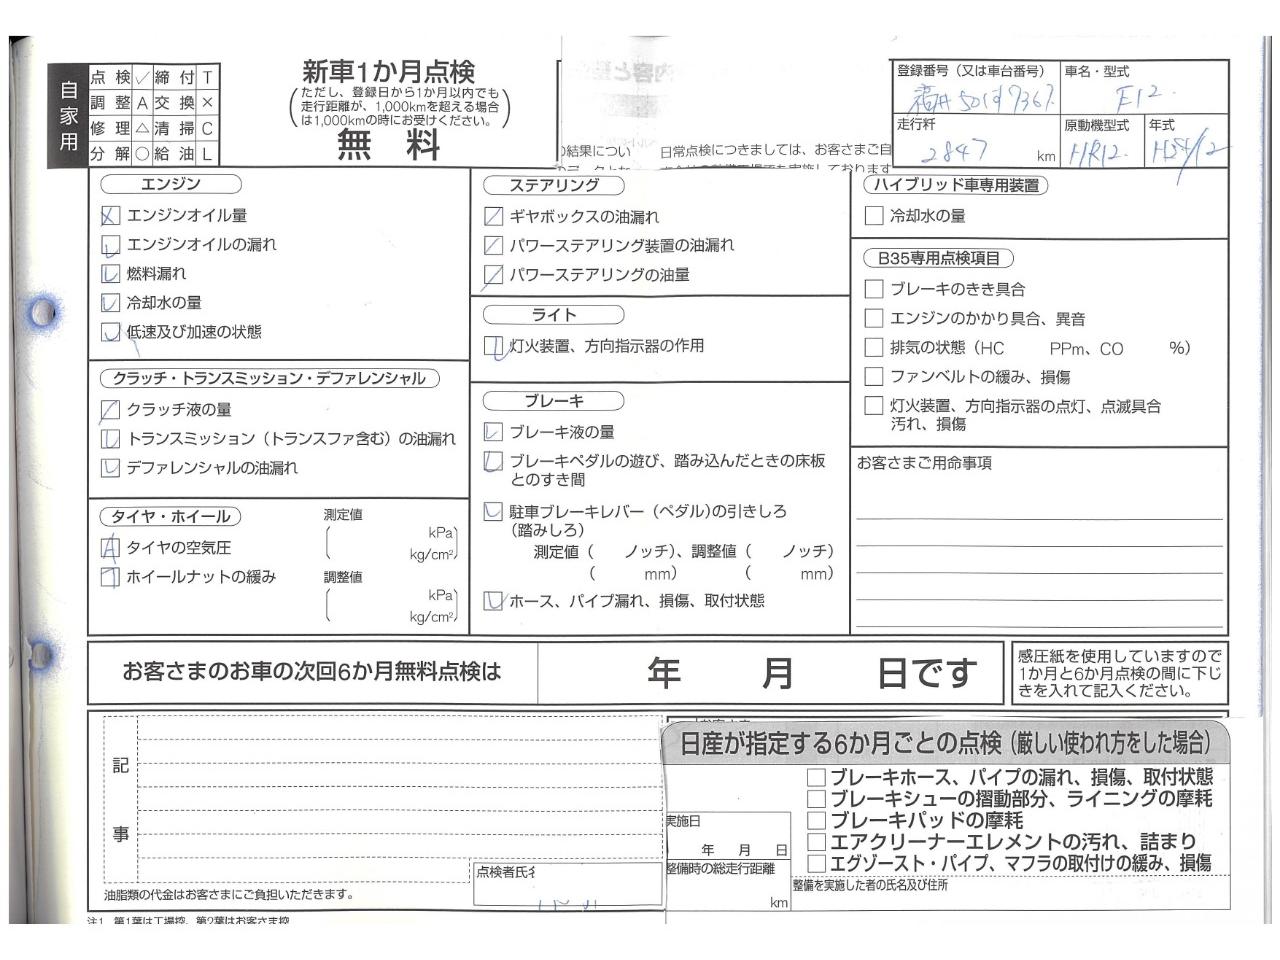 自家用
点検 ✓ 締付 T
調整 A 交換 ×
修理 △ 清掃 C
分解 ○ 給油 L
新車1か月点検
(ただし、登録日から1か月以内でも
走行距離が、1,000kmを超える場合
は1,000kmの時にお受けください。)
無料
の結果につい
日常点検につきましては、お客さまご自
登録番号（又は車台番号）
福井501す7367
車名・型式
E12
走行粁
2847 km
原動機型式
HR12
年式
H24/12
エンジン
エンジンオイル量
エンジンオイルの漏れ
燃料漏れ
冷却水の量
低速及び加速の状態
クラッチ・トランスミッション・デファレンシャル
クラッチ液の量
トランスミッション（トランスファ含む）の油漏れ
デファレンシャルの油漏れ
タイヤ・ホイール
測定値
タイヤの空気圧
( kPa
kg/cm² )
ホイールナットの緩み
調整値
( kPa
kg/cm² )
ステアリング
ギヤボックスの油漏れ
パワーステアリング装置の油漏れ
パワーステアリングの油量
ライト
灯火装置、方向指示器の作用
ブレーキ
ブレーキ液の量
ブレーキペダルの遊び、踏み込んだときの床板
とのすき間
駐車ブレーキレバー（ペダル）の引きしろ
(踏みしろ)
測定値（ ノッチ）、調整値（ ノッチ）
（ mm） （ mm）
ホース、パイプ漏れ、損傷、取付状態
ハイブリッド車専用装置
冷却水の量
B35専用点検項目
ブレーキのきき具合
エンジンのかかり具合、異音
排気の状態（HC PPm、CO %）
ファンベルトの緩み、損傷
灯火装置、方向指示器の点灯、点滅具合
汚れ、損傷
お客さまご用命事項
お客さまのお車の次回6か月無料点検は 年 月 日です
感圧紙を使用していますので
1か月と6か月点検の間に下じ
きを入れて記入ください。
記事
油脂類の代金はお客さまにご負担いただきます。
点検者氏名
日産が指定する6か月ごとの点検（厳しい使われ方をした場合）
ブレーキホース、パイプの漏れ、損傷、取付状態
ブレーキシューの摺動部分、ライニングの摩耗
ブレーキパッドの摩耗
エアクリーナーエレメントの汚れ、詰まり
エグゾースト・パイプ、マフラの取付けの緩み、損傷
実施日
年 月 日
整備時の総走行距離
km
整備を実施した者の氏名及び住所
注1 第1葉は工場控、第2葉はお客さま控